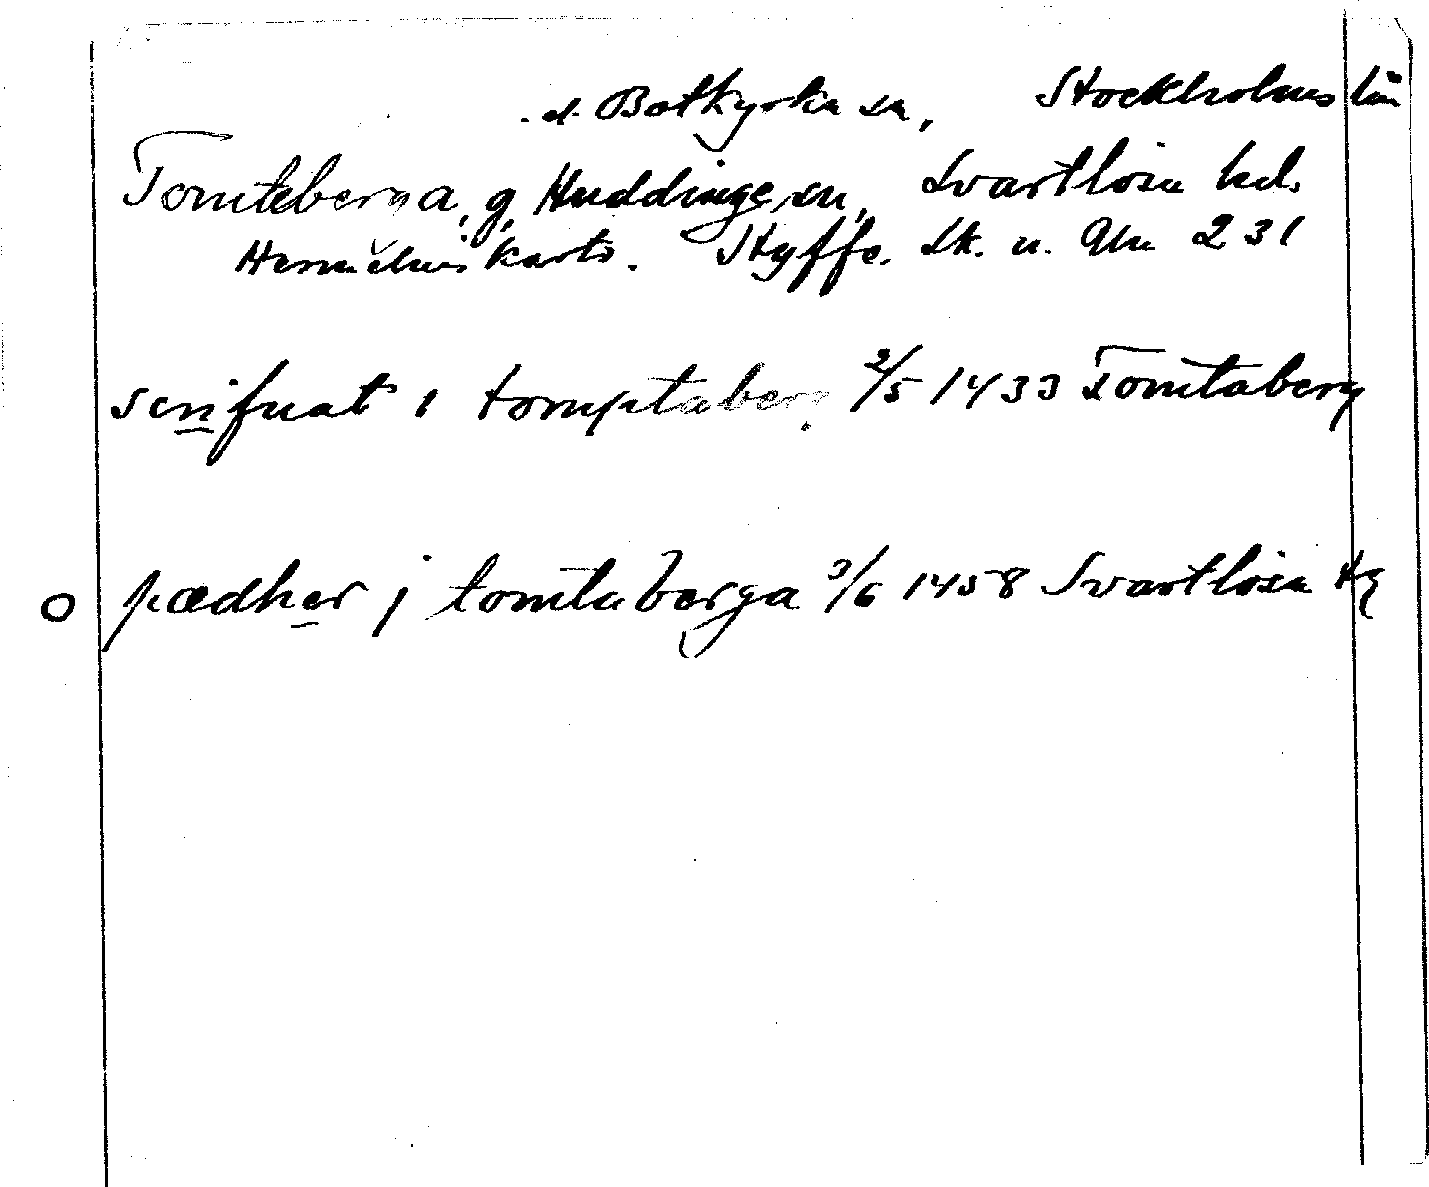 el. Botkyrka sn, Stockholms län
Tomteberga, g, Huddinge sn, Svartlösa hd.
karta. Styffe. Sk. u. Un 231
scrifuat i tomptaberg 2/5 1433 Tomtaberg
o pædher j tomtaberga 3/6 1458 Svartlösa